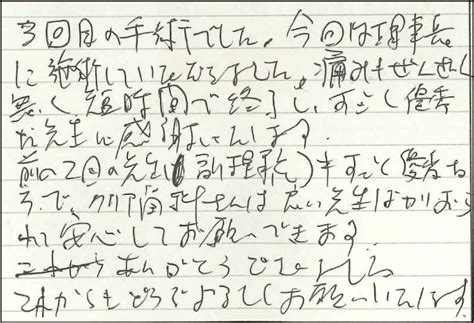 3回目の手術でした。今回は理事長
に施術していただきました。痛みもぜんぜん
無く短時間で終了し、すごく優秀
な先生に感謝いたします。
前の2回の先生(副理事長)もすごく優秀な
方で、南 さんは良い先生ばかりおら
れて安心してお願いできます。
ありがとうございました
これからもどうぞよろしくお願いいたします。